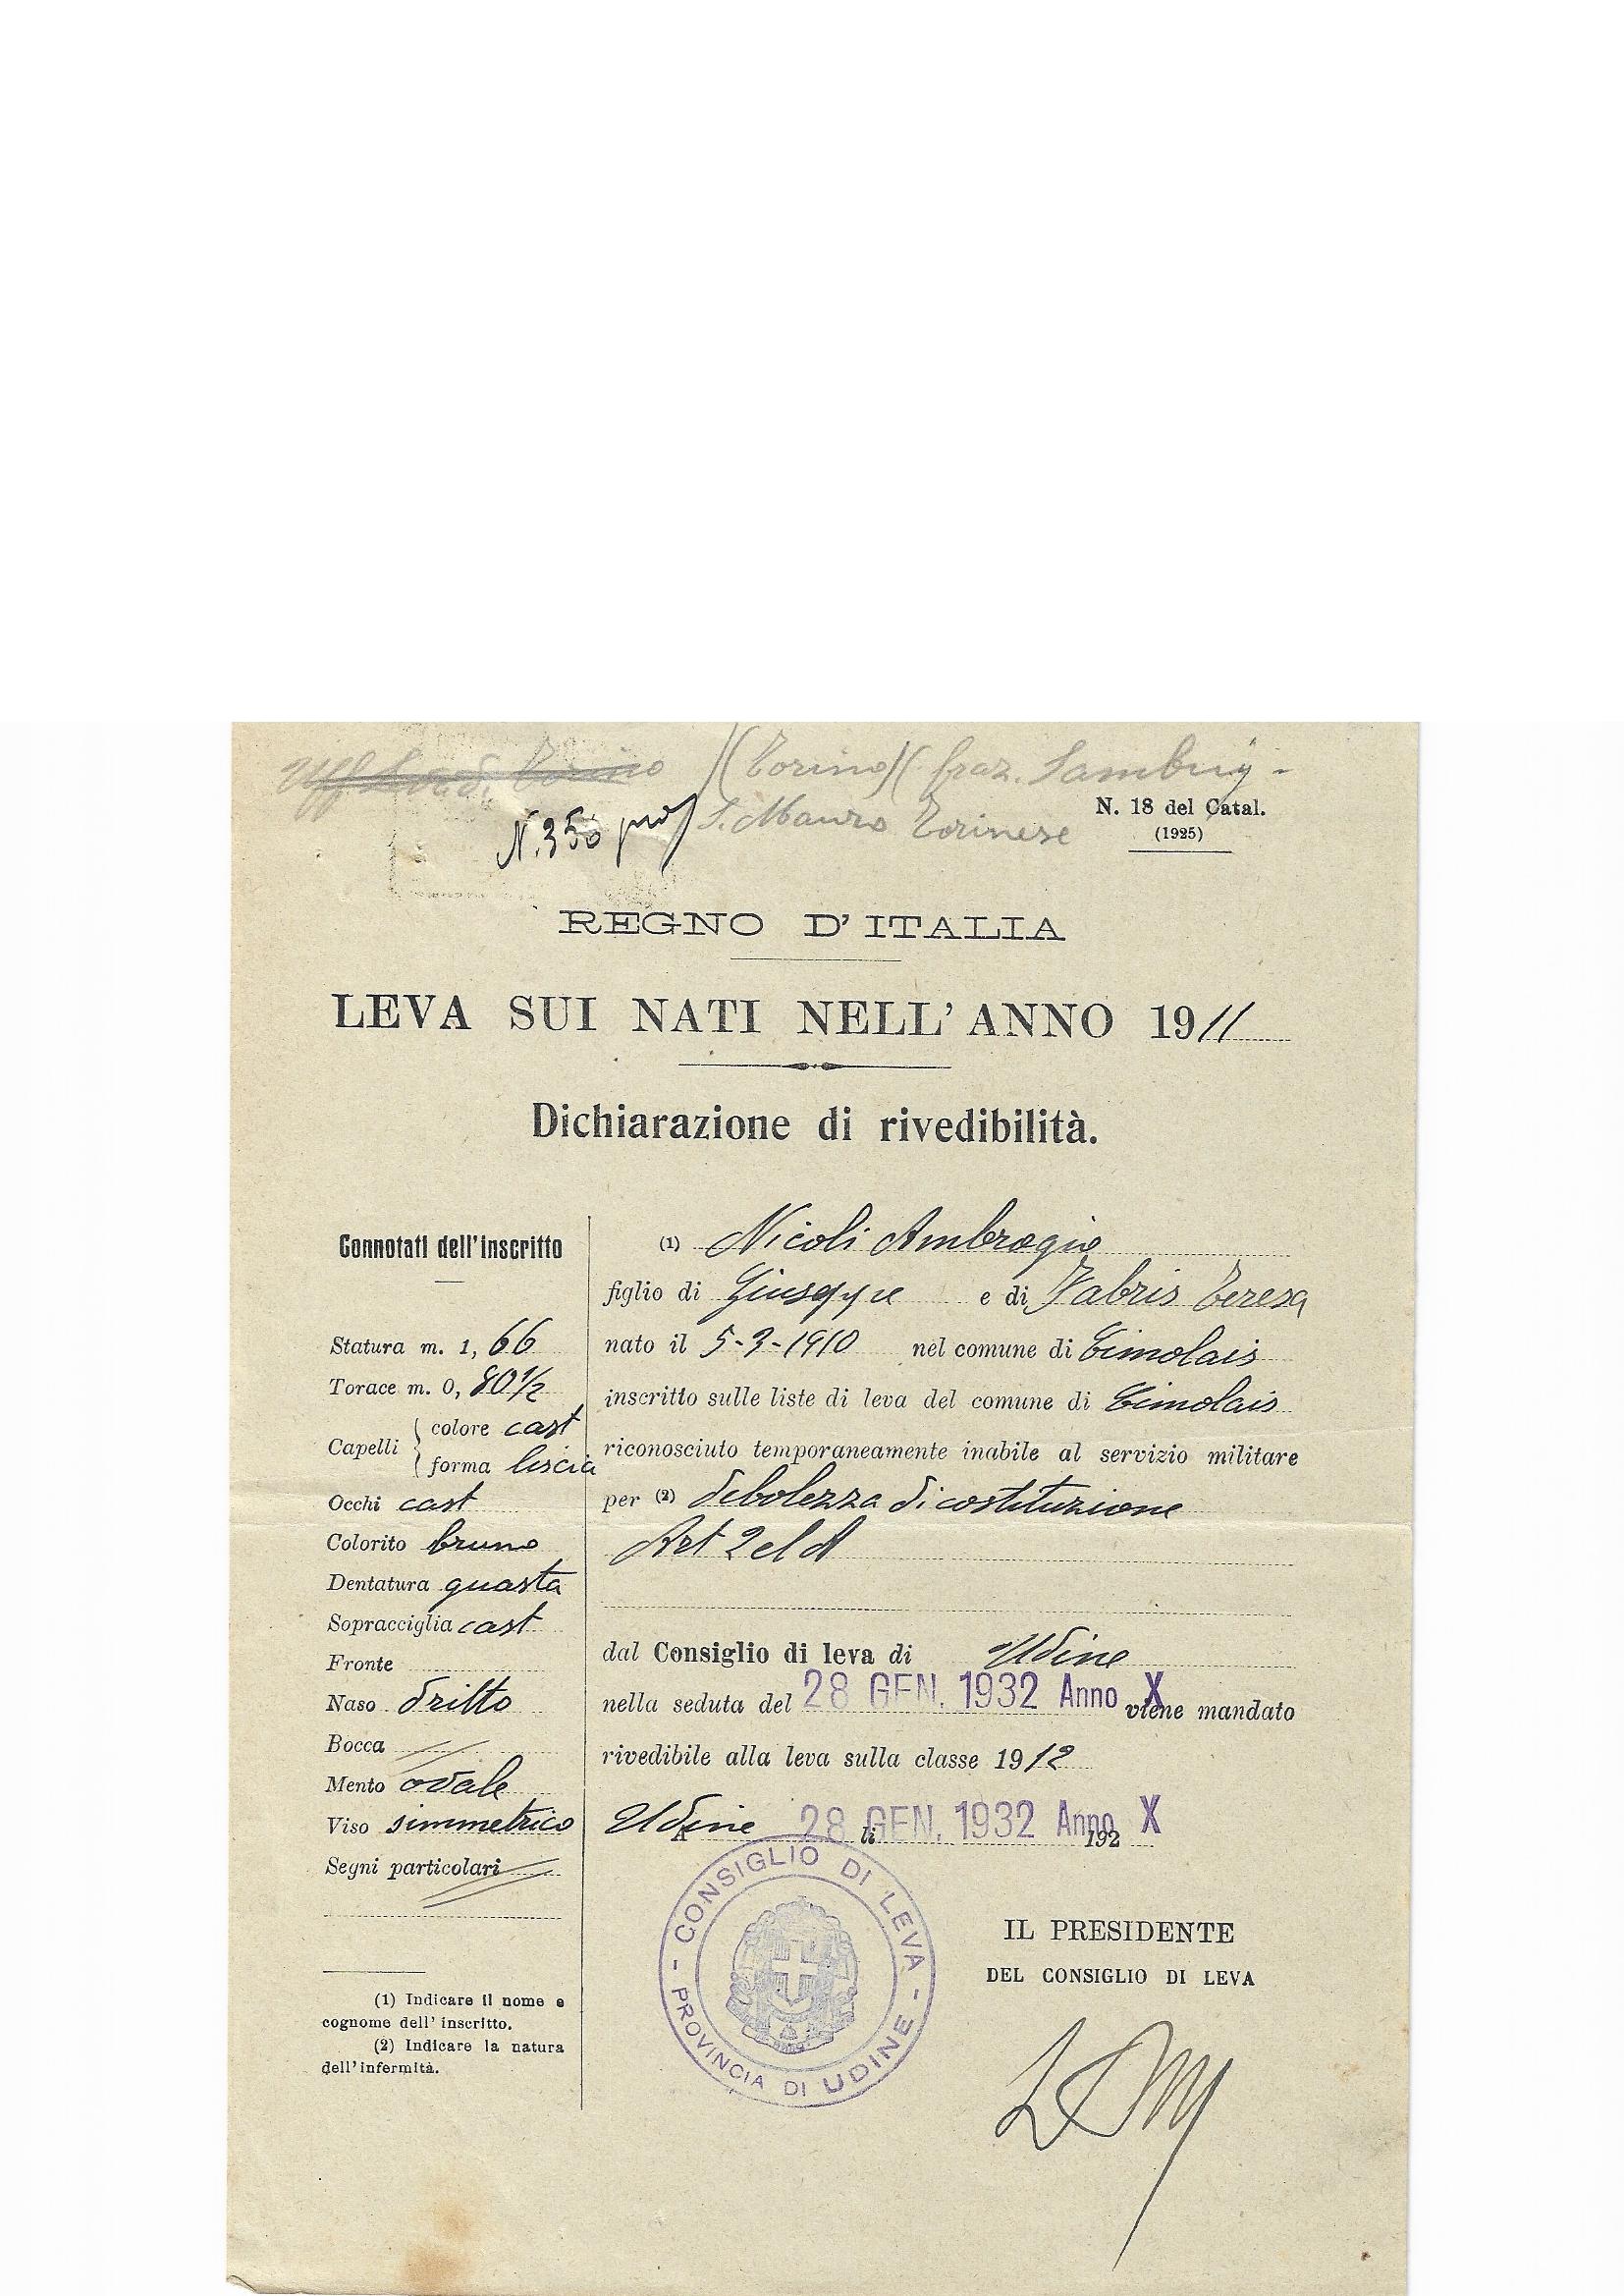 Uff Leva di Torino )(Torino)( fraz. Sambuy -
N. 350 prot S. Mauro Torinese
N. 18 del Catal.
(1925)
REGNO D'ITALIA
LEVA SUI NATI NELL'ANNO 1911
Dichiarazione di rivedibilità.
Connotati dell'inscritto
Statura m. 1, 66
Torace m. 0, 80½
Capelli colore cast
forma liscia
Occhi cast
Colorito bruno
Dentatura guasta
Sopracciglia cast
Fronte
Naso dritto
Bocca //
Mento ovale
Viso simmetrico
Segni particolari //
(1) Indicare il nome e
cognome dell' inscritto.
(2) Indicare la natura
dell'infermità.
(1) Nicoli Ambrogio
figlio di Giuseppe e di Fabris Teresa
nato il 5-3-1910 nel comune di Cimolais
inscritto sulle liste di leva del comune di Cimolais
riconosciuto temporaneamente inabile al servizio militare
per (2) debolezza di costituzione
Art 2 el A
dal Consiglio di leva di Udine
nella seduta del 28 GEN. 1932 Anno X viene mandato
rivedibile alla leva sulla classe 1912
A Udine li 28 GEN. 1932 Anno X 192
CONSIGLIO DI LEVA
- PROVINCIA DI UDINE -
IL PRESIDENTE
DEL CONSIGLIO DI LEVA